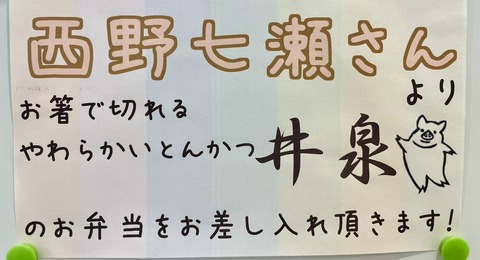 西野七瀬さん
より
お箸で切れる
やわらかいとんかつ井泉
のお弁当をお差し入れ頂きます!